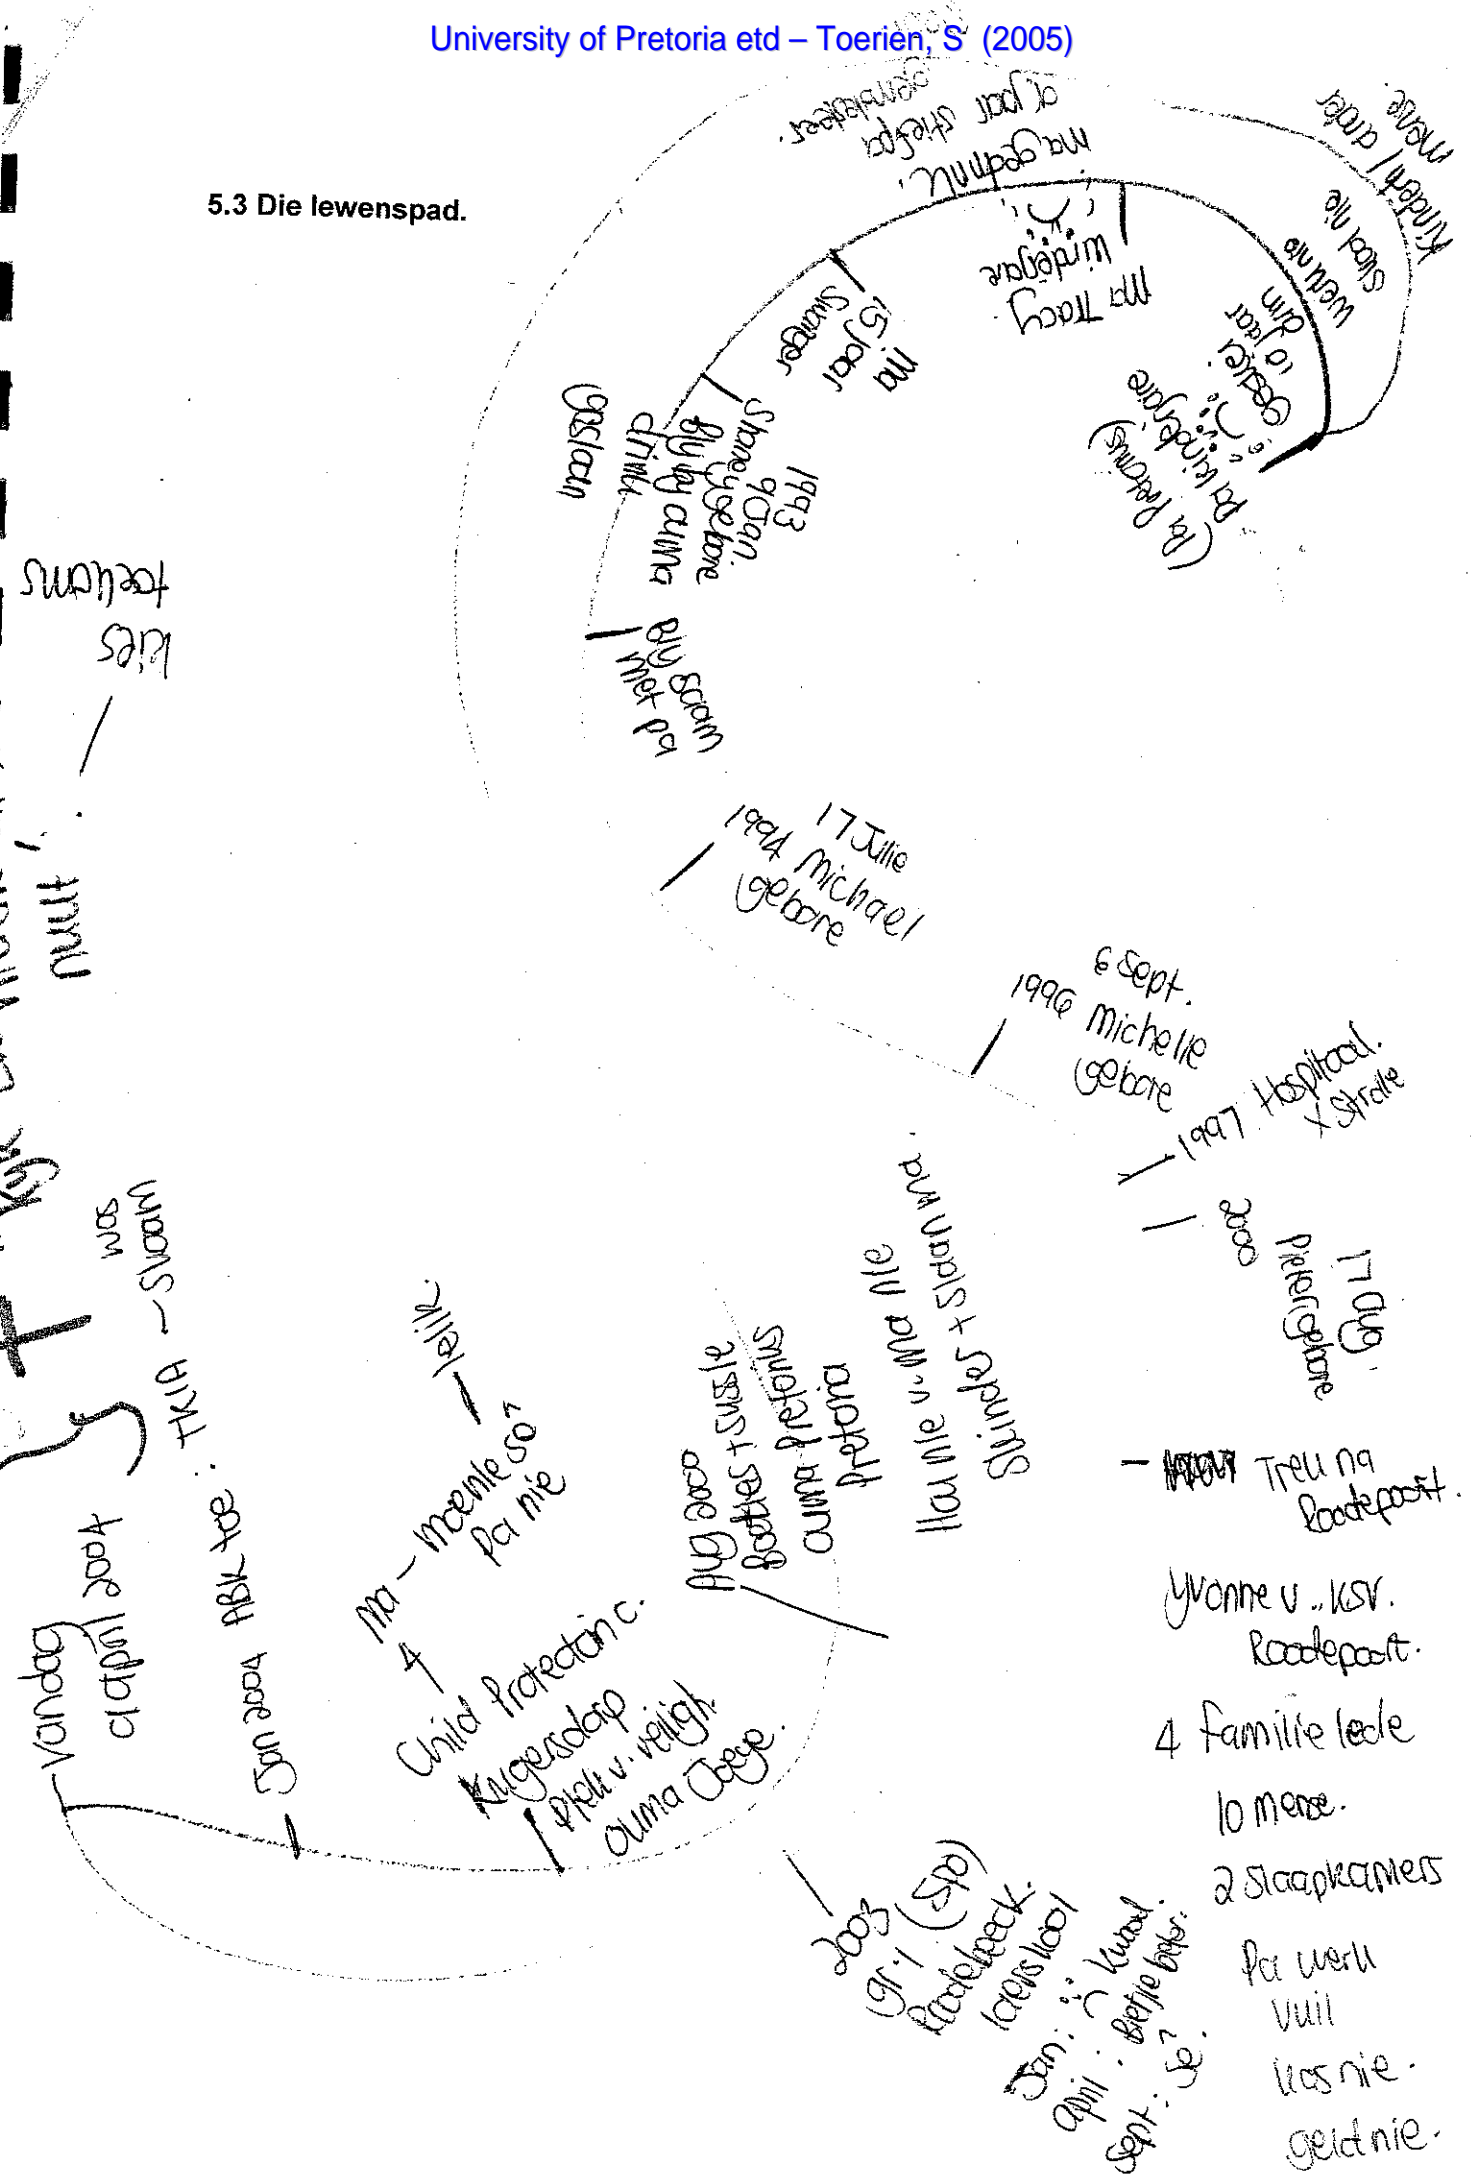 University of Pretoria etd – Toerien, S (2005)
5.3 Die lewenspad.
(Pa Pretorius)
Pa kinderjare
Geskei
10 jaar
drin
werk nie
skool nie
kinders / ander
mense.
Ma Tracy
kinderjare
ma gedrink.
9 jaar stiefpa
gemolesteer.
ma
15 jaar
swanger
1993
9 Jan.
Shaney gebore
Bly by ouma
drink
(geslaan
Bly saam
met pa
17 Julie
1994 Michael
gebore
6 Sept.
1996 Michelle
gebore
1997 Hospitaal.
x strale
17 Aug.
Pieter gebore
2000
Trek na
Roodepoort.
Yvonne v. KSV.
Roodepoort.
4 familie lede
10 mense.
2 slaapkamers
Pa werk
vuil
kos nie.
geld nie.
Aug 2000
Boeties + sussie
ouma Pretorius
Pretoria
Hou nie v. ma nie
Skinder + slaan ma.
2003
gr. 1 (Spa)
Roodebeeck.
laerskool
Jan: Kwaad.
april: Bietjie beter.
Sept: Je?
Child Protection c.
Krugersdorp
Plek v. veiligh.
ouma Joege.
4
Ma – moenie so?
Pa nie
lelik.
Jan 2004 ABK toe: TKIA – Skaam
was
Vandag
9 april 2004
kyk
nuut
kies
toekoms